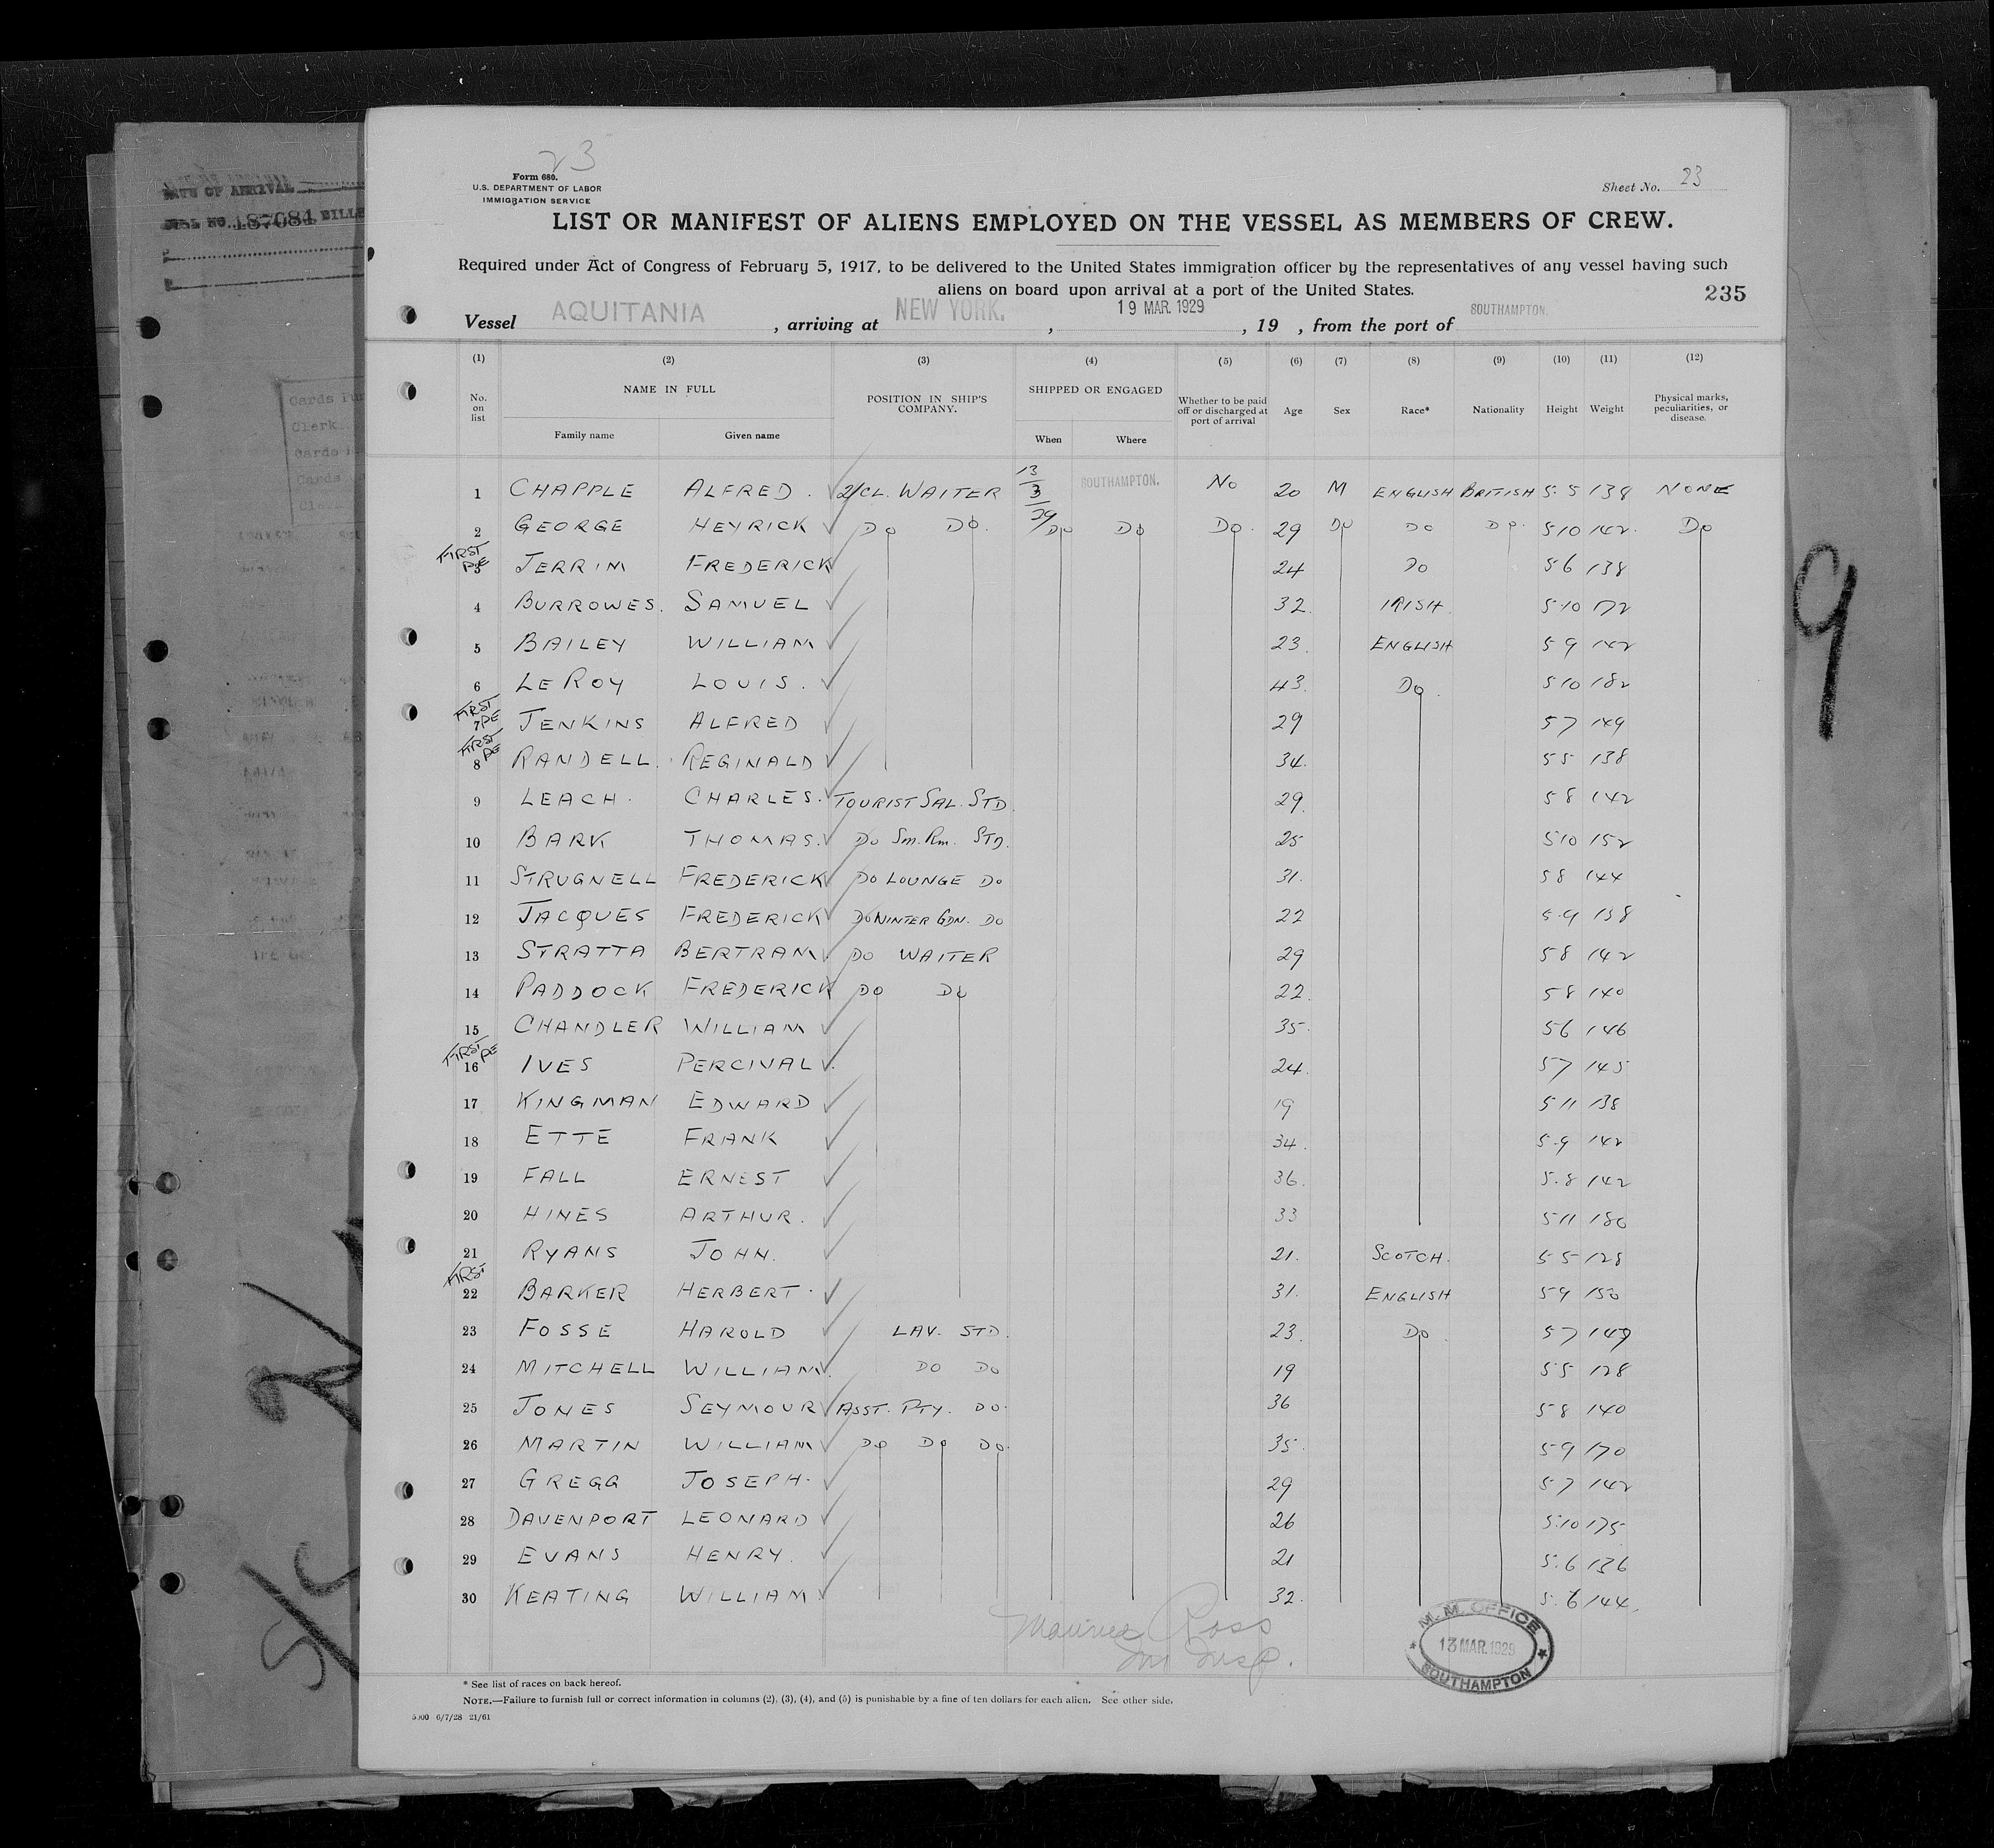 23
Form 680.
U.S. DEPARTMENT OF LABOR
IMMIGRATION SERVICE
Sheet No. 23
LIST OR MANIFEST OF ALIENS EMPLOYED ON THE VESSEL AS MEMBERS OF CREW.
Required under Act of Congress of February 5, 1917, to be delivered to the United States immigration officer by the representatives of any vessel having such
aliens on board upon arrival at a port of the United States.
235
Vessel AQUITANIA, arriving at NEW YORK., 19 MAR. 1929, 19 , from the port of SOUTHAMPTON.
(1) (2) (3) (4) (5) (6) (7) (8) (9) (10) (11) (12)
No. on list NAME IN FULL POSITION IN SHIP'S COMPANY. SHIPPED OR ENGAGED Whether to be paid off or discharged at port of arrival Age Sex Race* Nationality Height Weight Physical marks, peculiarities, or disease.
Family name Given name When Where
1 CHAPPLE ALFRED. 2/CL. WAITER 13/3/29 SOUTHAMPTON. NO 20 M ENGLISH BRITISH 5.5 138 NONE
2 GEORGE HEYRICK DO DO. DO DO DO. 29 DO DO DO. 5 10 142. DO
FIRST PE 3 JERRIM FREDERICK 24 DO 5 6 138
4 BURROWES. SAMUEL 32. IRISH 5 10 172
5 BAILEY WILLIAM 23. ENGLISH 5 9 142
6 LEROY LOUIS. 43. DO. 5 10 182
FIRST PE 7 JENKINS ALFRED 29 5 7 149
FIRST PE 8 RANDELL. REGINALD 34. 5 5 138
9 LEACH. CHARLES. TOURIST SAL. STD. 29. 5 8 142
10 BARK THOMAS. DO SM. RM. STD. 25 5 10 152
11 STRUGNELL FREDERICK DO LOUNGE DO 31. 5 8 144
12 JACQUES FREDERICK DO WINTER GDN. DO 22 5.9 138
13 STRATTA BERTRAM DO WAITER 29 5 8 142
14 PADDOCK FREDERICK DO DO 22. 5 8 140
15 CHANDLER WILLIAM 35. 5 6 146
FIRST PE 16 IVES PERCIVAL. 24. 5 7 145
17 KINGMAN EDWARD 19 5 11 138
18 ETTE FRANK 34. 5.9 142
19 FALL ERNEST 36. 5.8 142
20 HINES ARTHUR. 33 5 11 180
21 RYANS JOHN. 21. SCOTCH. 5 5 128
FIRST 22 BARKER HERBERT. 31. ENGLISH 5 9 150
23 FOSSE HAROLD LAV. STD. 23. DO. 5 7 149
24 MITCHELL WILLIAM. DO DO 19 5 5 128
25 JONES SEYMOUR ASST. PTY. DO. 36 5 8 140
26 MARTIN WILLIAM DO DO DO. 35. 5 9 170
27 GREGG JOSEPH. 29 5 7 142
28 DAVENPORT LEONARD 26 5.10 175
29 EVANS HENRY. 21 5.6 136
30 KEATING WILLIAM 32. 5.6 144.
Maurice Ross
Im Insp.
M. M. OFFICE
13 MAR. 1929
SOUTHAMPTON
* See list of races on back hereof.
NOTE.—Failure to furnish full or correct information in columns (2), (3), (4), and (5) is punishable by a fine of ten dollars for each alien. See other side.
5000 6/7/28 21/61
9
DATE OF ARRIVAL
187084
Clerk
Cards
Cards